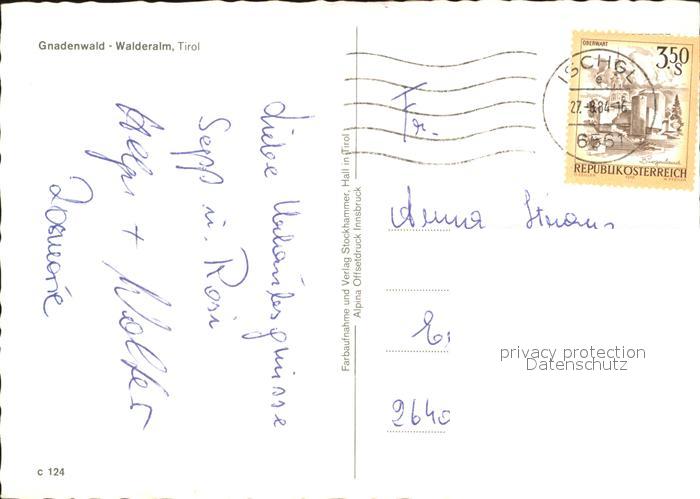 Gnadenwald - Walderalm, Tirol
Liebe Urlaubsgrüsse
Sepp u. Rosi
Helga + Walter
Rosmarie
c 124
Farbaufnahme und Verlag Stockhammer, Hall in Tirol
Alpina Offsetdruck Innsbruck
OBERWART
3.50
S
Burgenland
REPUBLIK ÖSTERREICH
ISCHGL
e
27.-8.84-16
6561
Fr.
Anna
2640
privacy protection
Datenschutz